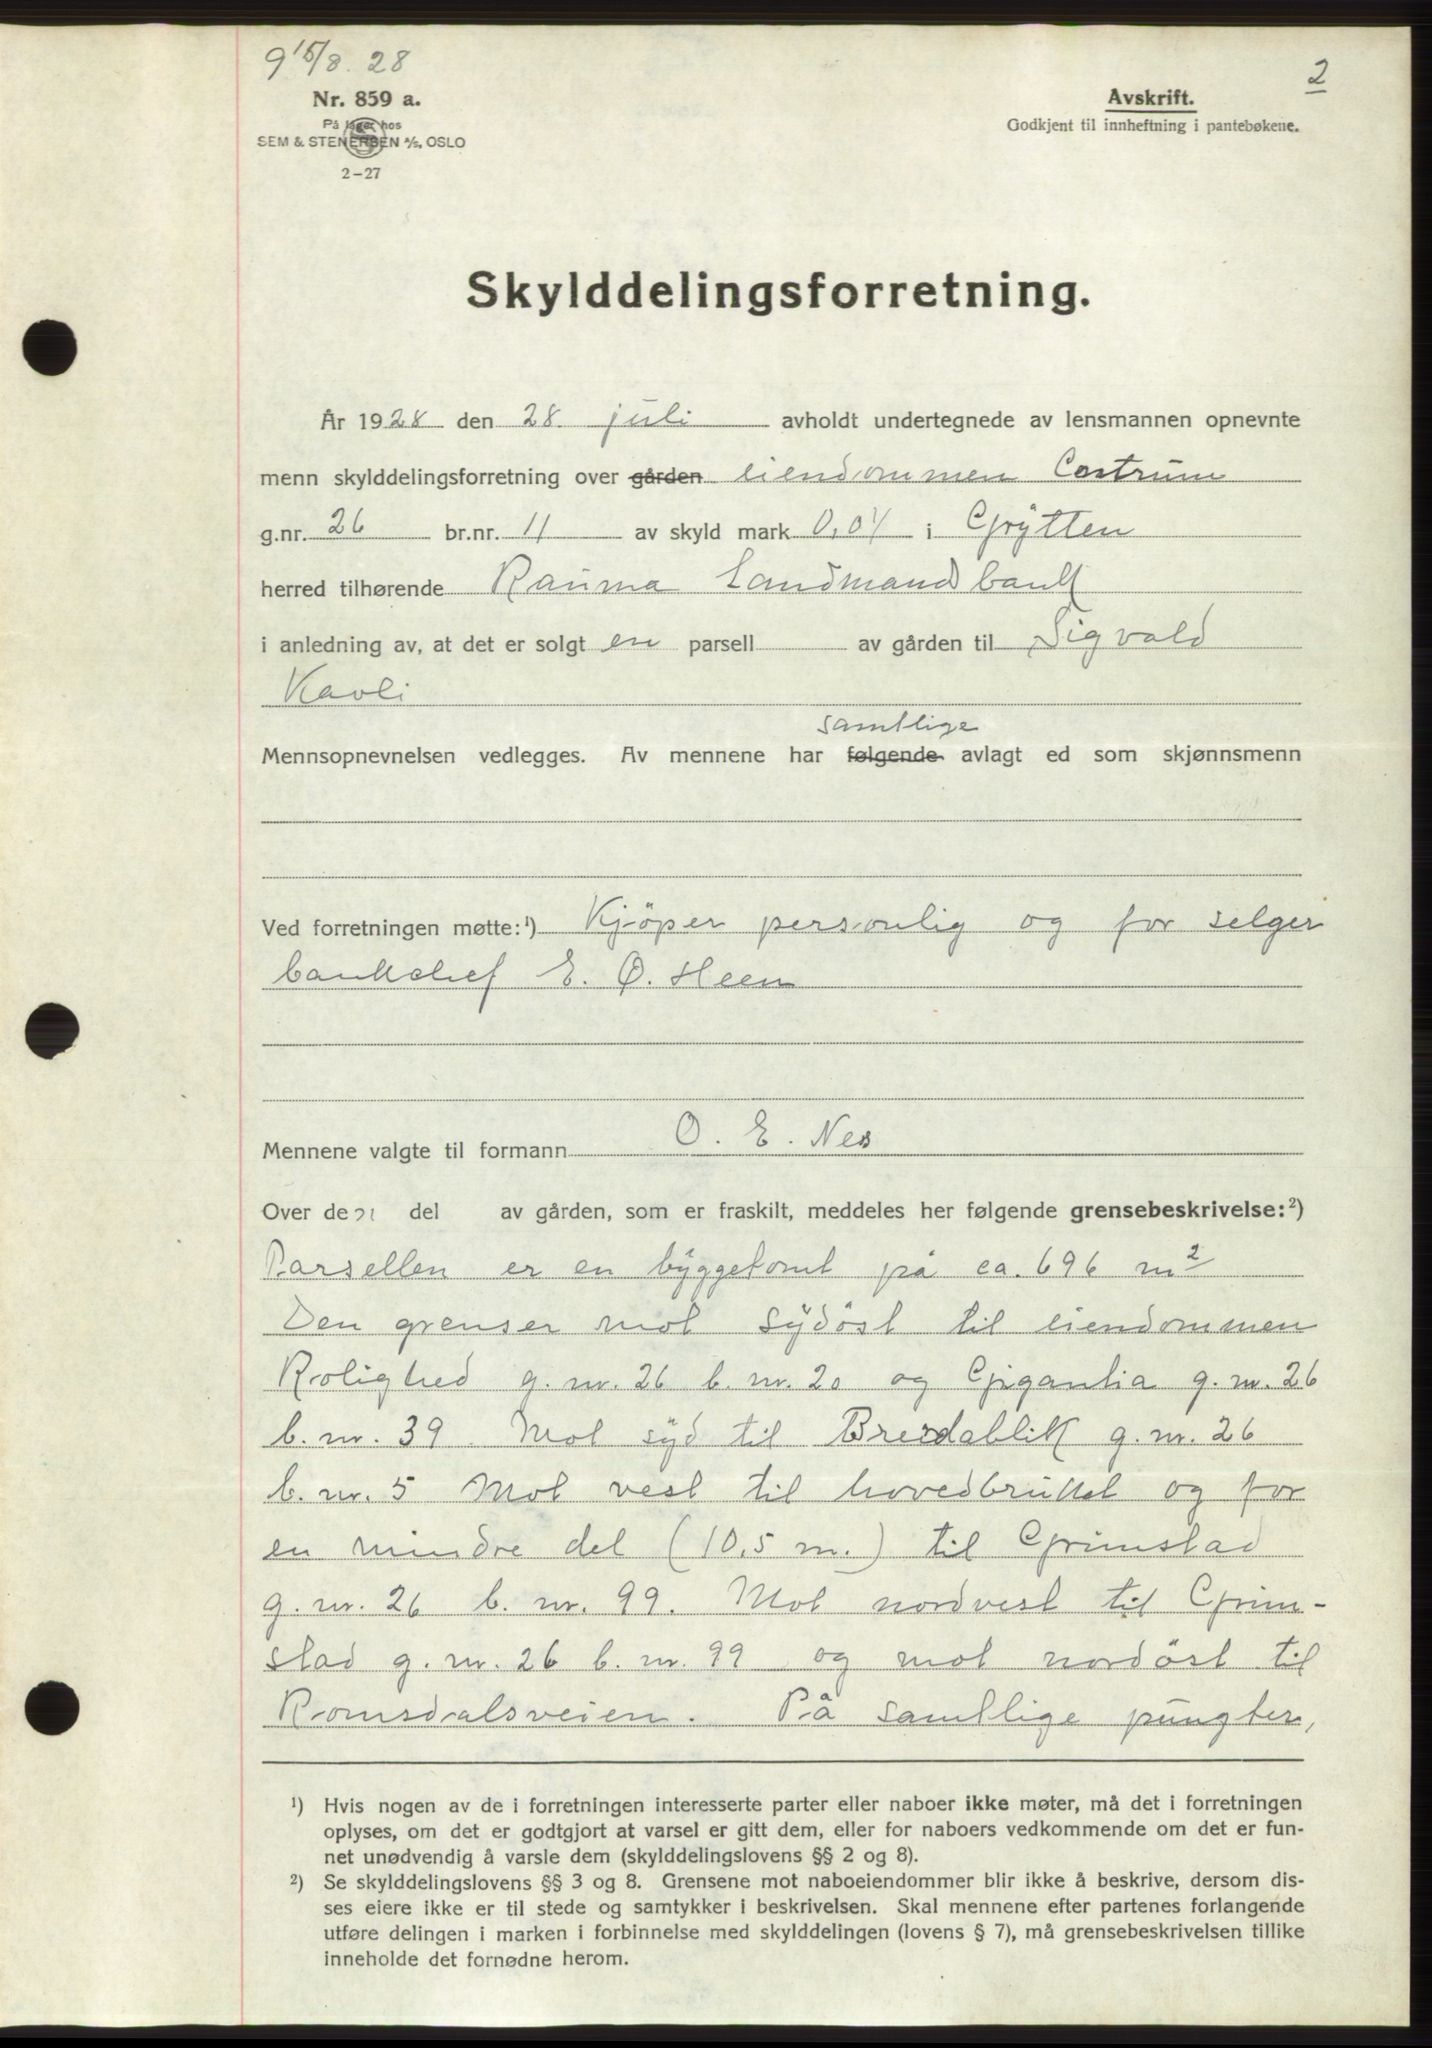 9 15/8. 28
2
Nr. 859 a.
Avskrift.
På lager hos
Godkjent til innheftning i pantebøkene.
SEM & STENERSEN A/S, OSLO
2-27
Skylddelingsforretning.
År 1928 den 28. juli avholdt undertegnede av lensmannen opnevnte
menn skylddelingsforretning over gården eiendommen Castrum
g.nr. 26 br.nr. 11 av skyld mark 0,04 i Grytten
herred tilhørende Rauma Landmandsbank
i anledning av, at det er solgt en parsell av gården til Sigvald
Kavli
samtlige
Mennsopnevnelsen vedlegges. Av mennene har følgende avlagt ed som skjønnsmenn
Ved forretningen møtte:¹) Kjöper personlig og for selger
bankchef E. O. Heen
Mennene valgte til formann O. E. Nes
Over den del av gården, som er fraskilt, meddeles her følgende grensebeskrivelse:²)
Parsellen er en byggetomt på ca. 696 m²
Den grenser mot sydöst til eiendommen
Rolighed g. nr. 26 b. nr. 20 og Gigantia g. nr. 26
b. nr. 39. Mot syd til Breidablik g. nr. 26
b. nr. 5 Mot vest til hovedbruket og for
en mindre del (10,5 m.) til Grimstad
g. nr. 26 b. nr. 99. Mot nordvest til Grim-
stad g. nr. 26 b. nr. 99 og mot nordöst til
Romsdalsveien. På samtlige pungter,
¹) Hvis nogen av de i forretningen interesserte parter eller naboer ikke møter, må det i forretningen
oplyses, om det er godtgjort at varsel er gitt dem, eller for naboers vedkommende om det er fun-
net unødvendig å varsle dem (skylddelingslovens §§ 2 og 8).
²) Se skylddelingslovens §§ 3 og 8. Grensene mot naboeiendommer blir ikke å beskrive, dersom dis-
ses eiere ikke er til stede og samtykker i beskrivelsen. Skal mennene efter partenes forlangende
utføre delingen i marken i forbinnelse med skylddelingen (lovens § 7), må grensebeskrivelsen tillike
inneholde det fornødne herom.